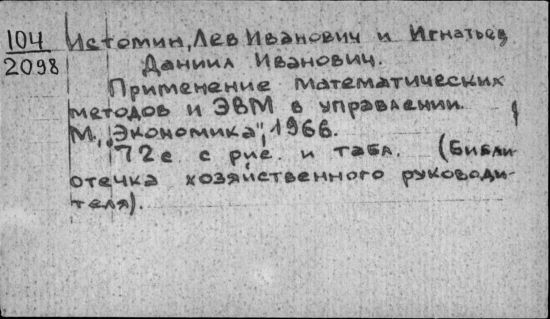 104 Истомин, Лев Иванович и Игнатьев
2098 Даниил Иванович.
Применение математических
методов и ЭВМ в управлении.
М., „Экономика", 1966.
72с с рис. и табл. (Библи-
отечка хозяйственного руководи-
теля).